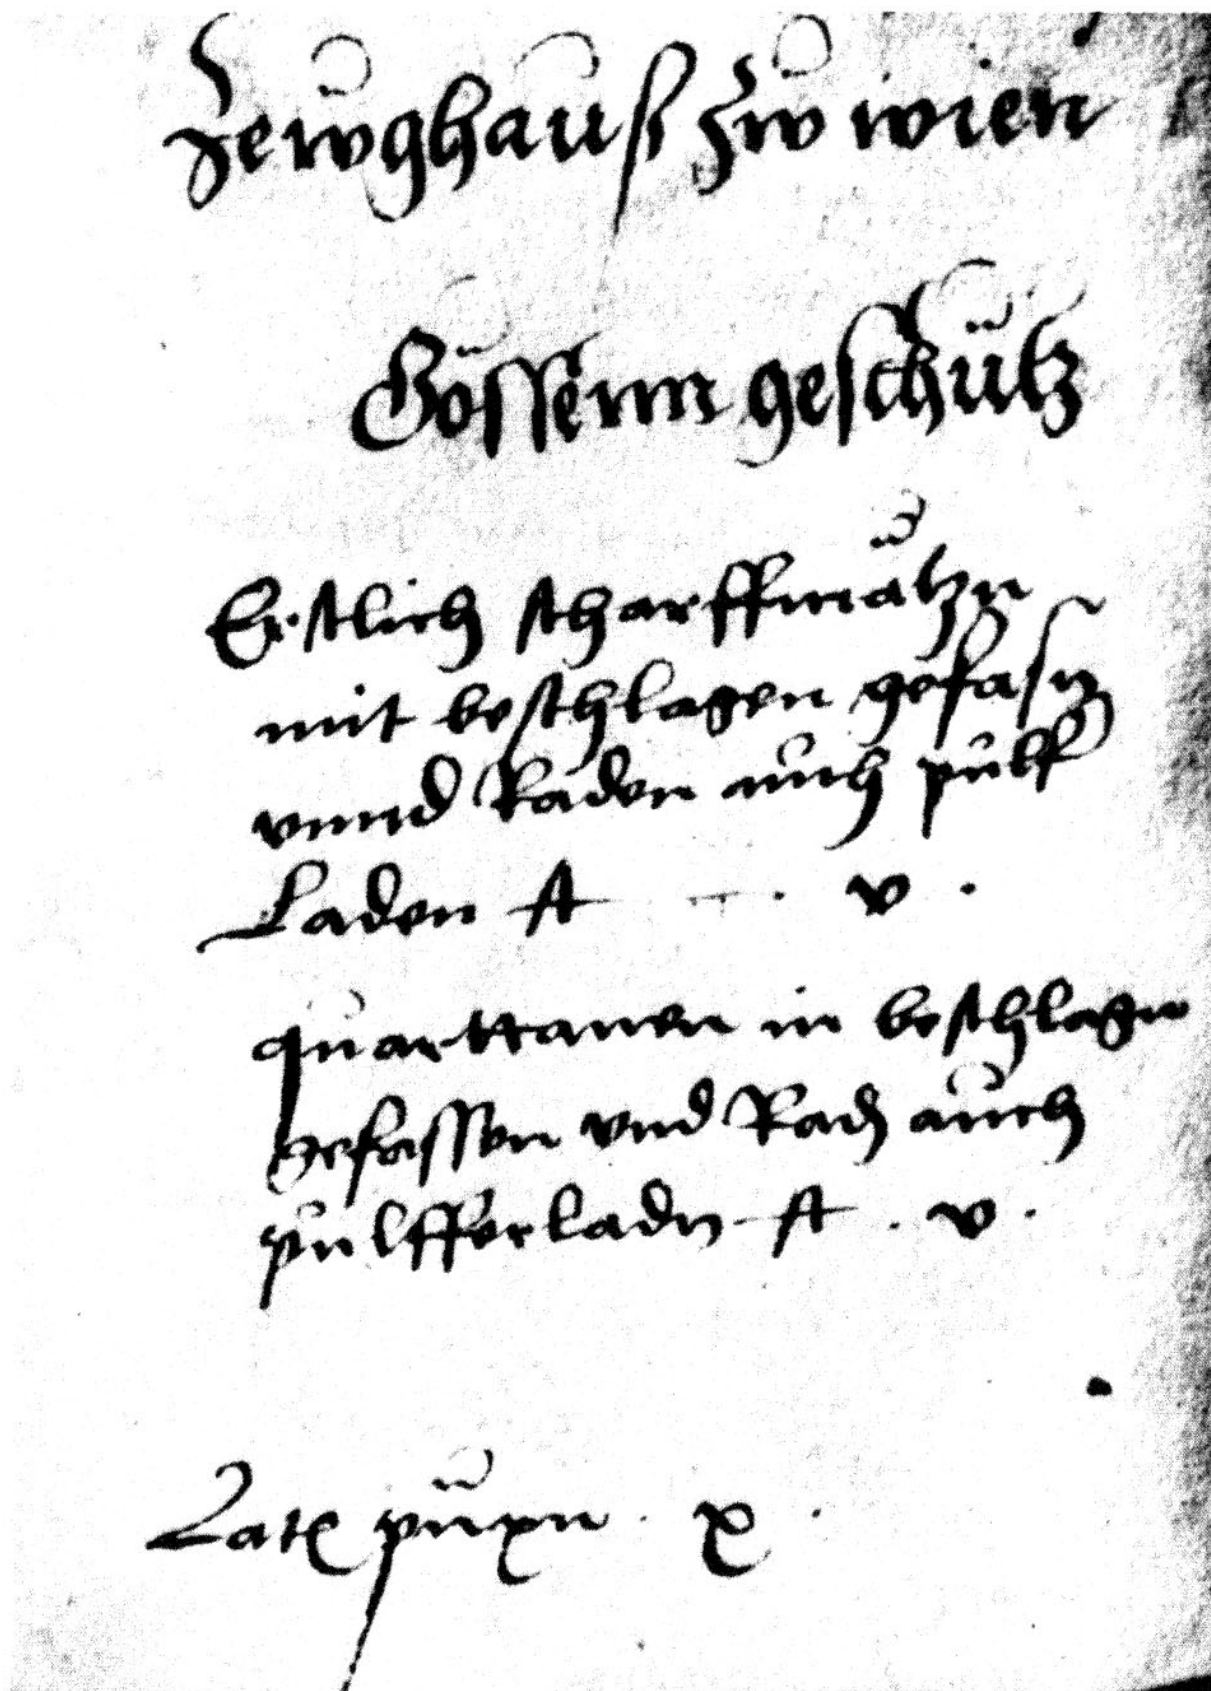 Zewghauß zw wien
Gössenn geschütz
Erstlich scharffmätzn
mit beschlagen gefasn
vnnd Raden auch pulf
Laden st v .
quarttanen in beschlagn
gefassen vnd Rad auch
pulfferladn st . v .
Latꝭ püxn . x .